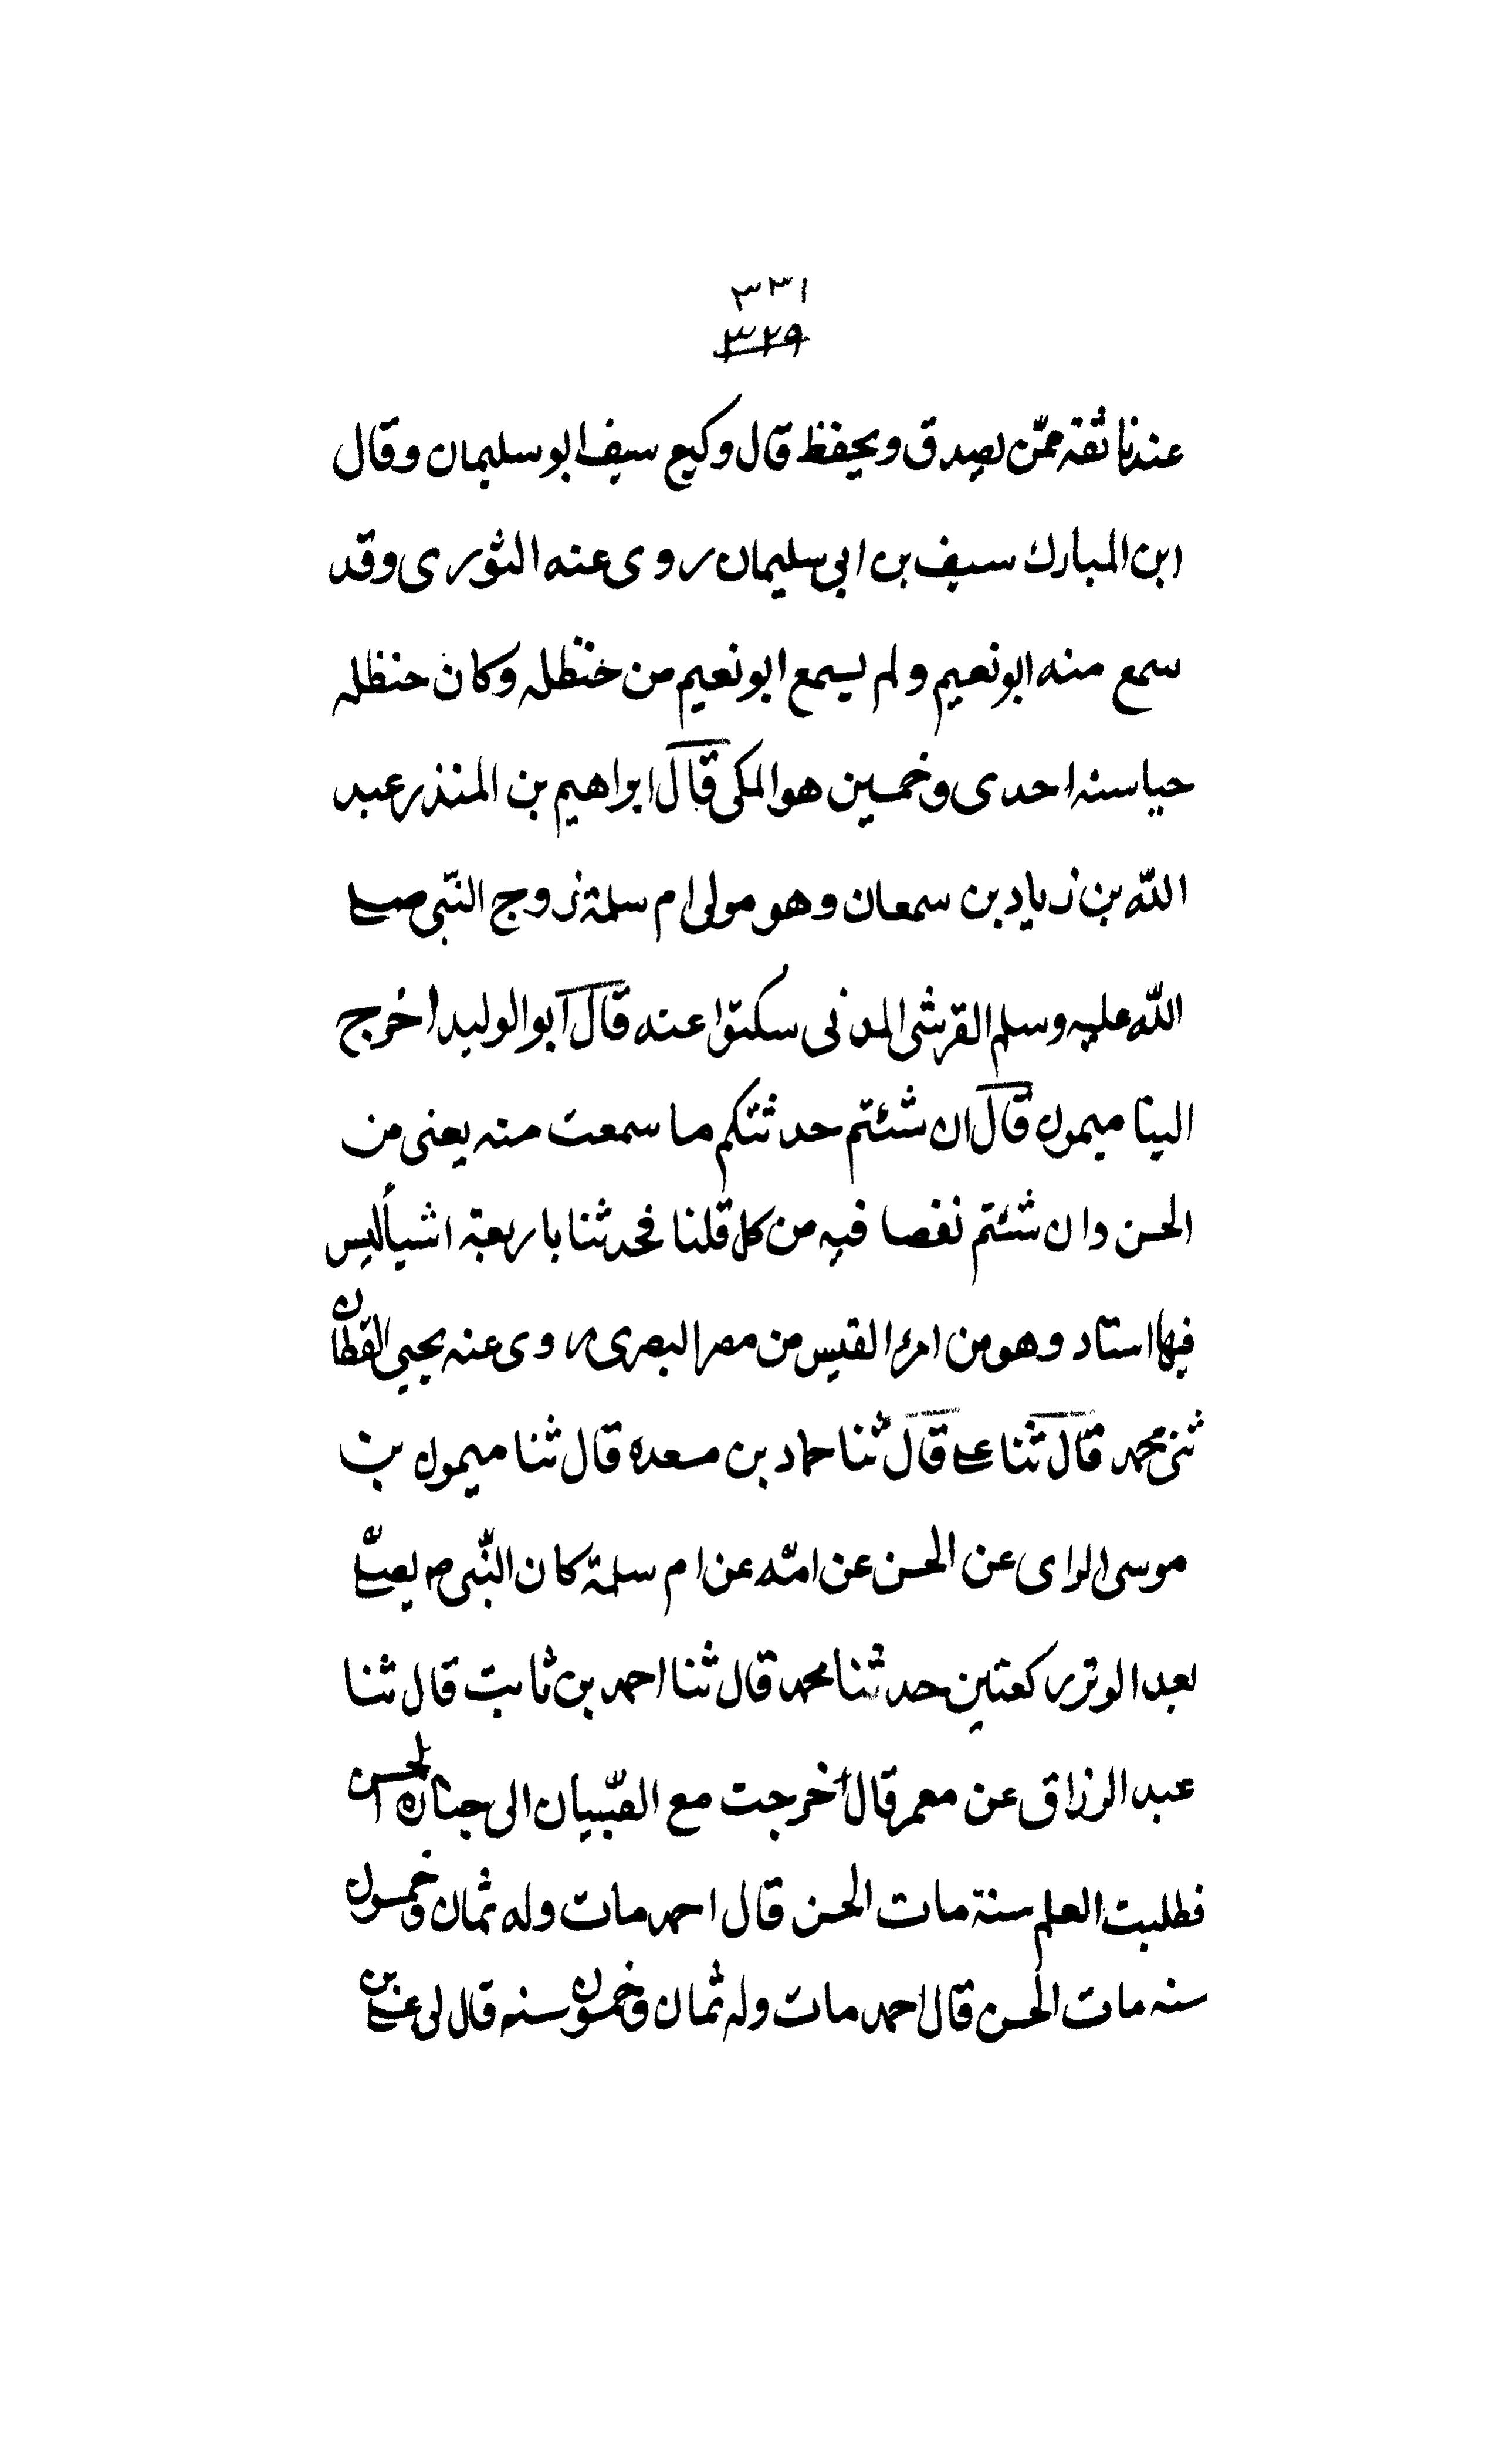 ٣٣١
٣٢٩
عندنا ثقه ممّن يصدق ويحفظ قال وكيع سيف ابو سليمان وقال
ابن المبارك سيف بن ابي سليمان روى عنه الثورى وقد
سمع منه ابو نعيم ولم يسمع ابو نعيم من خنظله وكان حنظله
حيا سنه احدى وخمسين هو المكى قال ابراهيم بن المنذر عبد
اللّه بن زياد بن سمعان وهو مولى ام سلمة زوج النّبى صلے
اللّه عليه وسلم القرشى المدنى سكتوا عنه قال ابو الوليد اخرج
الينا ميمون قال ان شئتم حدثتكم ما سمعت منه يعنى من
الحسن دان شئتم نغصا فيه من كل قلنا فحدثنا باربعة اشيأ ليس
فيها استاد وهو من امرء القيس من مصر البصرى روى عنه يحيى القطان
ثنى محمد قال ثنا علے قال ثنا حماد بن مسعده قال ثنا ميمون بن
موسى الراى عن الحسن عن امّه عن ام سلمة كان النّبى ص يصلّے
بعد الوتر ركعتين حدثنا محمد قال ثنا احمد بن ثابت قال ثنا
عبد الرزاق عن معمر قال خرجت مع الصّبيان الى جنازة الحسن
فطلبت العلم سنة مات الحسن قال احمد مات وله ثمان وخمسون
سنه مات الحسن قال احمد مات وله ثمان وخمسون سنه قال لى علے بن